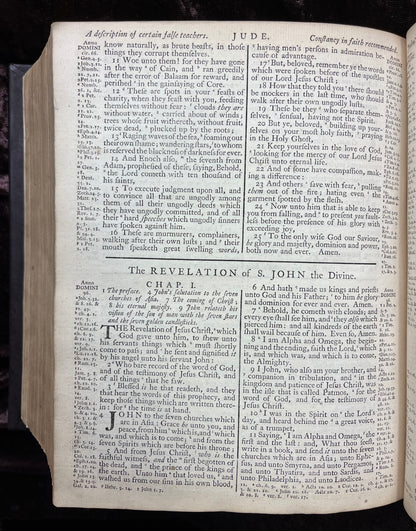 A description of certain false teachers. JUDE. Constancy in faith recommended.
know naturally, as brute beasts, in those
things they corrupt themselves.
11 Woe unto them! for they have gone
in the way of Cain, and ran greedily
after the error of Balaam for reward, and
perished in the gainsaying of Core.
12 These are spots in your feasts of
charity, when they feast with you, feeding
themselves without fear: clouds they are
without water, carried about of winds;
trees whose fruit withereth, without fruit,
twice dead, plucked up by the roots;
13 Raging waves of the sea, foaming out
their own shame; wandering stars, to whom
is reserved the blackness of darkness for ever.
14 And Enoch also, the seventh from
Adam, prophesied of these, saying, Behold,
the Lord cometh with ten thousand of
his saints,
15 To execute judgment upon all, and
to convince all that are ungodly among
them of all their ungodly deeds which
they have ungodly committed, and of all
their hard speeches which ungodly sinners
have spoken against him.
16 These are murmurers, complainers,
walking after their own lusts; and their
mouth speaketh great swelling words,
having men's persons in admiration because
of advantage.
17 But, beloved, remember ye the words
which were spoken before of the apostles
of our Lord Jesus Christ:
18 How that they told you there should
be mockers in the last time, who should
walk after their own ungodly lusts.
19 These be they who separate themselves,
sensual, having not the Spirit.
20 But ye, beloved, building up yourselves
on your most holy faith, praying
in the Holy Ghost,
21 Keep yourselves in the love of God,
looking for the mercy of our Lord Jesus
Christ unto eternal life.
22 And of some have compassion, making
a difference:
23 And others save with fear, pulling
them out of the fire; hating even the
garment spotted by the flesh.
24 Now unto him that is able to keep
you from falling, and to present you faultless
before the presence of his glory with
exceeding joy,
25 To the only wise God our Saviour,
be glory and majesty, dominion and power,
both now and ever. Amen.
The REVELATION of S. JOHN the Divine.
CHAP. I.
1 The preface. 4 John's salutation to the seven
churches of Asia. 7 The coming of Christ;
8 his eternal majesty. 9 John relateth his
vision of the son of man with the seven stars
and the seven golden candlesticks.
THE Revelation of Jesus Christ, which
God gave unto him, to shew unto
his servants things which must shortly
come to pass; and he sent and signified it
by his angel unto his servant John:
2 Who bare record of the word of God,
and of the testimony of Jesus Christ, and
of all things that he saw.
3 Blessed is he that readeth, and they
that hear the words of this prophecy, and
keep those things which are written therein:
for the time is at hand.
JOHN to the seven churches which
are in Asia: Grace be unto you, and
peace, from him which is, and which
was, and which is to come; and from the
seven Spirits which are before his throne;
5 And from Jesus Christ, who is the
faithful witness, and the first begotten of
the dead, and the prince of the kings of
the earth. Unto him that loved us, and
washed us from our sins in his own blood,
6 And hath made us kings and priests
unto God and his Father; to him be glory
and dominion for ever and ever. Amen.
7 Behold, he cometh with clouds; and
every eye shall see him, and they also which
pierced him: and all kindreds of the earth
shall wail because of him. Even so, Amen.
8 I am Alpha and Omega, the beginning
and the ending, saith the Lord, which
is, and which was, and which is to come,
the Almighty.
9 I John, who also am your brother, and
companion in tribulation, and in the
kingdom and patience of Jesus Christ, was
in the isle that is called Patmos, for the
word of God, and for the testimony of
Jesus Christ.
10 I was in the Spirit on the Lord's
day, and heard behind me a great voice,
as of a trumpet,
11 Saying, I am Alpha and Omega, the
first and the last: and, What thou seest,
write in a book, and send it unto the seven
churches which are in Asia; unto Ephesus,
and unto Smyrna, and unto Pergamos,
and unto Thyatira, and unto Sardis, and
unto Philadelphia, and unto Laodicea.